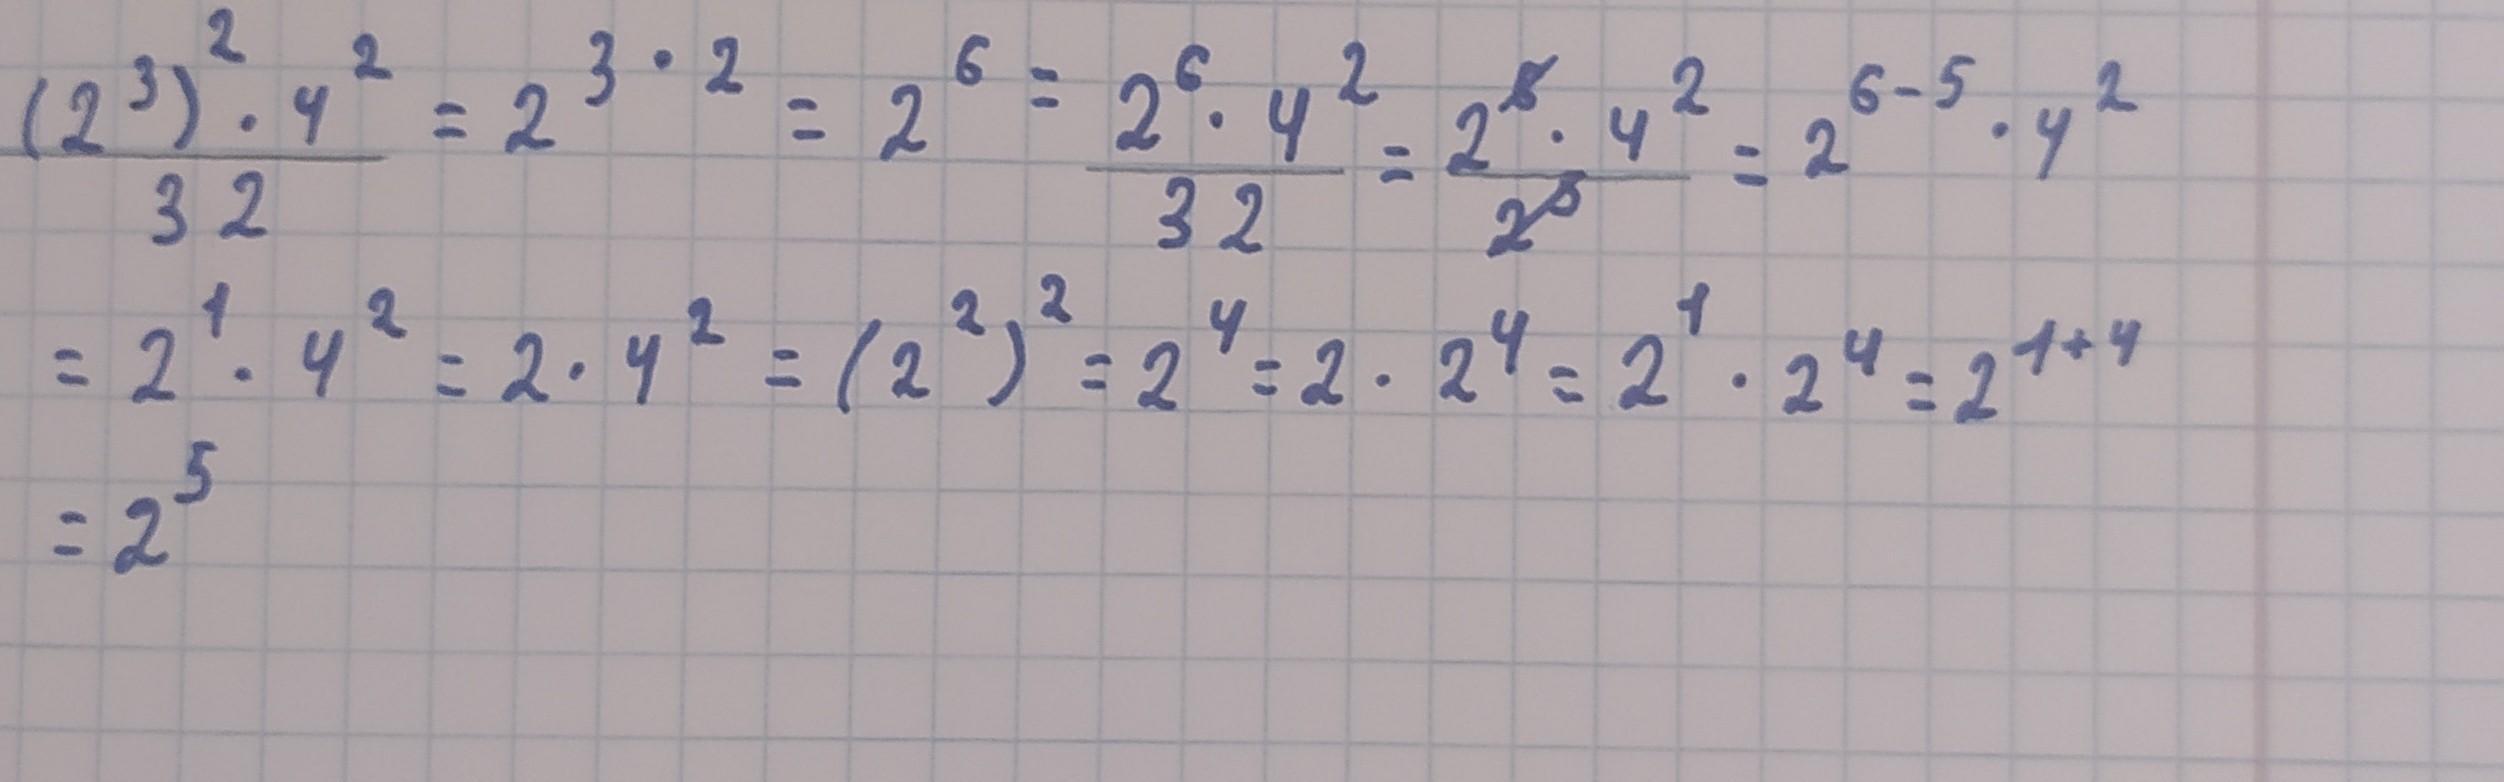 (2³)² · 4² / 32 = 2^(3 · 2) = 2⁶ = 2⁶ · 4² / 32 = 2⁶ · 4² / 2⁵ = 2^(6-5) · 4²
= 2¹ · 4² = 2 · 4² = (2²)² = 2⁴ = 2 · 2⁴ = 2¹ · 2⁴ = 2^(1+4)
= 2⁵